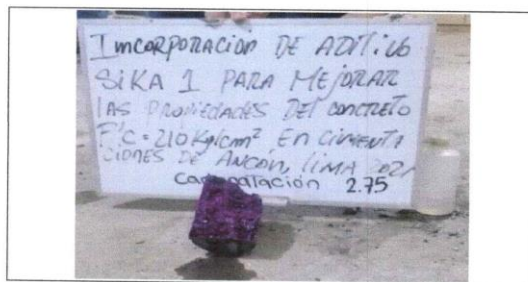 Imcorporación DE ADITIVO
SIKA 1 PARA MEJORAR
lAS PROPIEDADES DEl CONCRETO
F'C = 210 Kg/cm² EN CIMENTA
CIONES DE ANCÓN, LIMA 2021
2.75